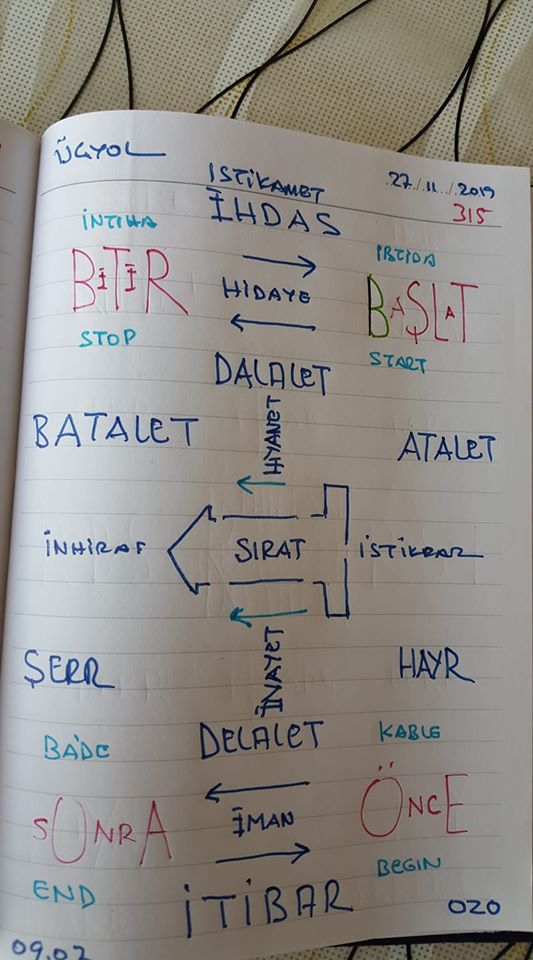 ÜÇYOL
27/11/2019
ISTİKAMET
315
İNTİHA
İHDAS
İBTİDA
BİTİR
HİDAYE
BAŞLAT
STOP
START
DALALET
BATALET
HIYANET
ATALET
İNHİRAF
SIRAT
İSTİKRAR
ŞERR
İNAYET
HAYR
BÂDE
DELALET
KABLE
SONRA
İMAN
ÖNCE
END
BEGIN
İTİBAR
020
09.02